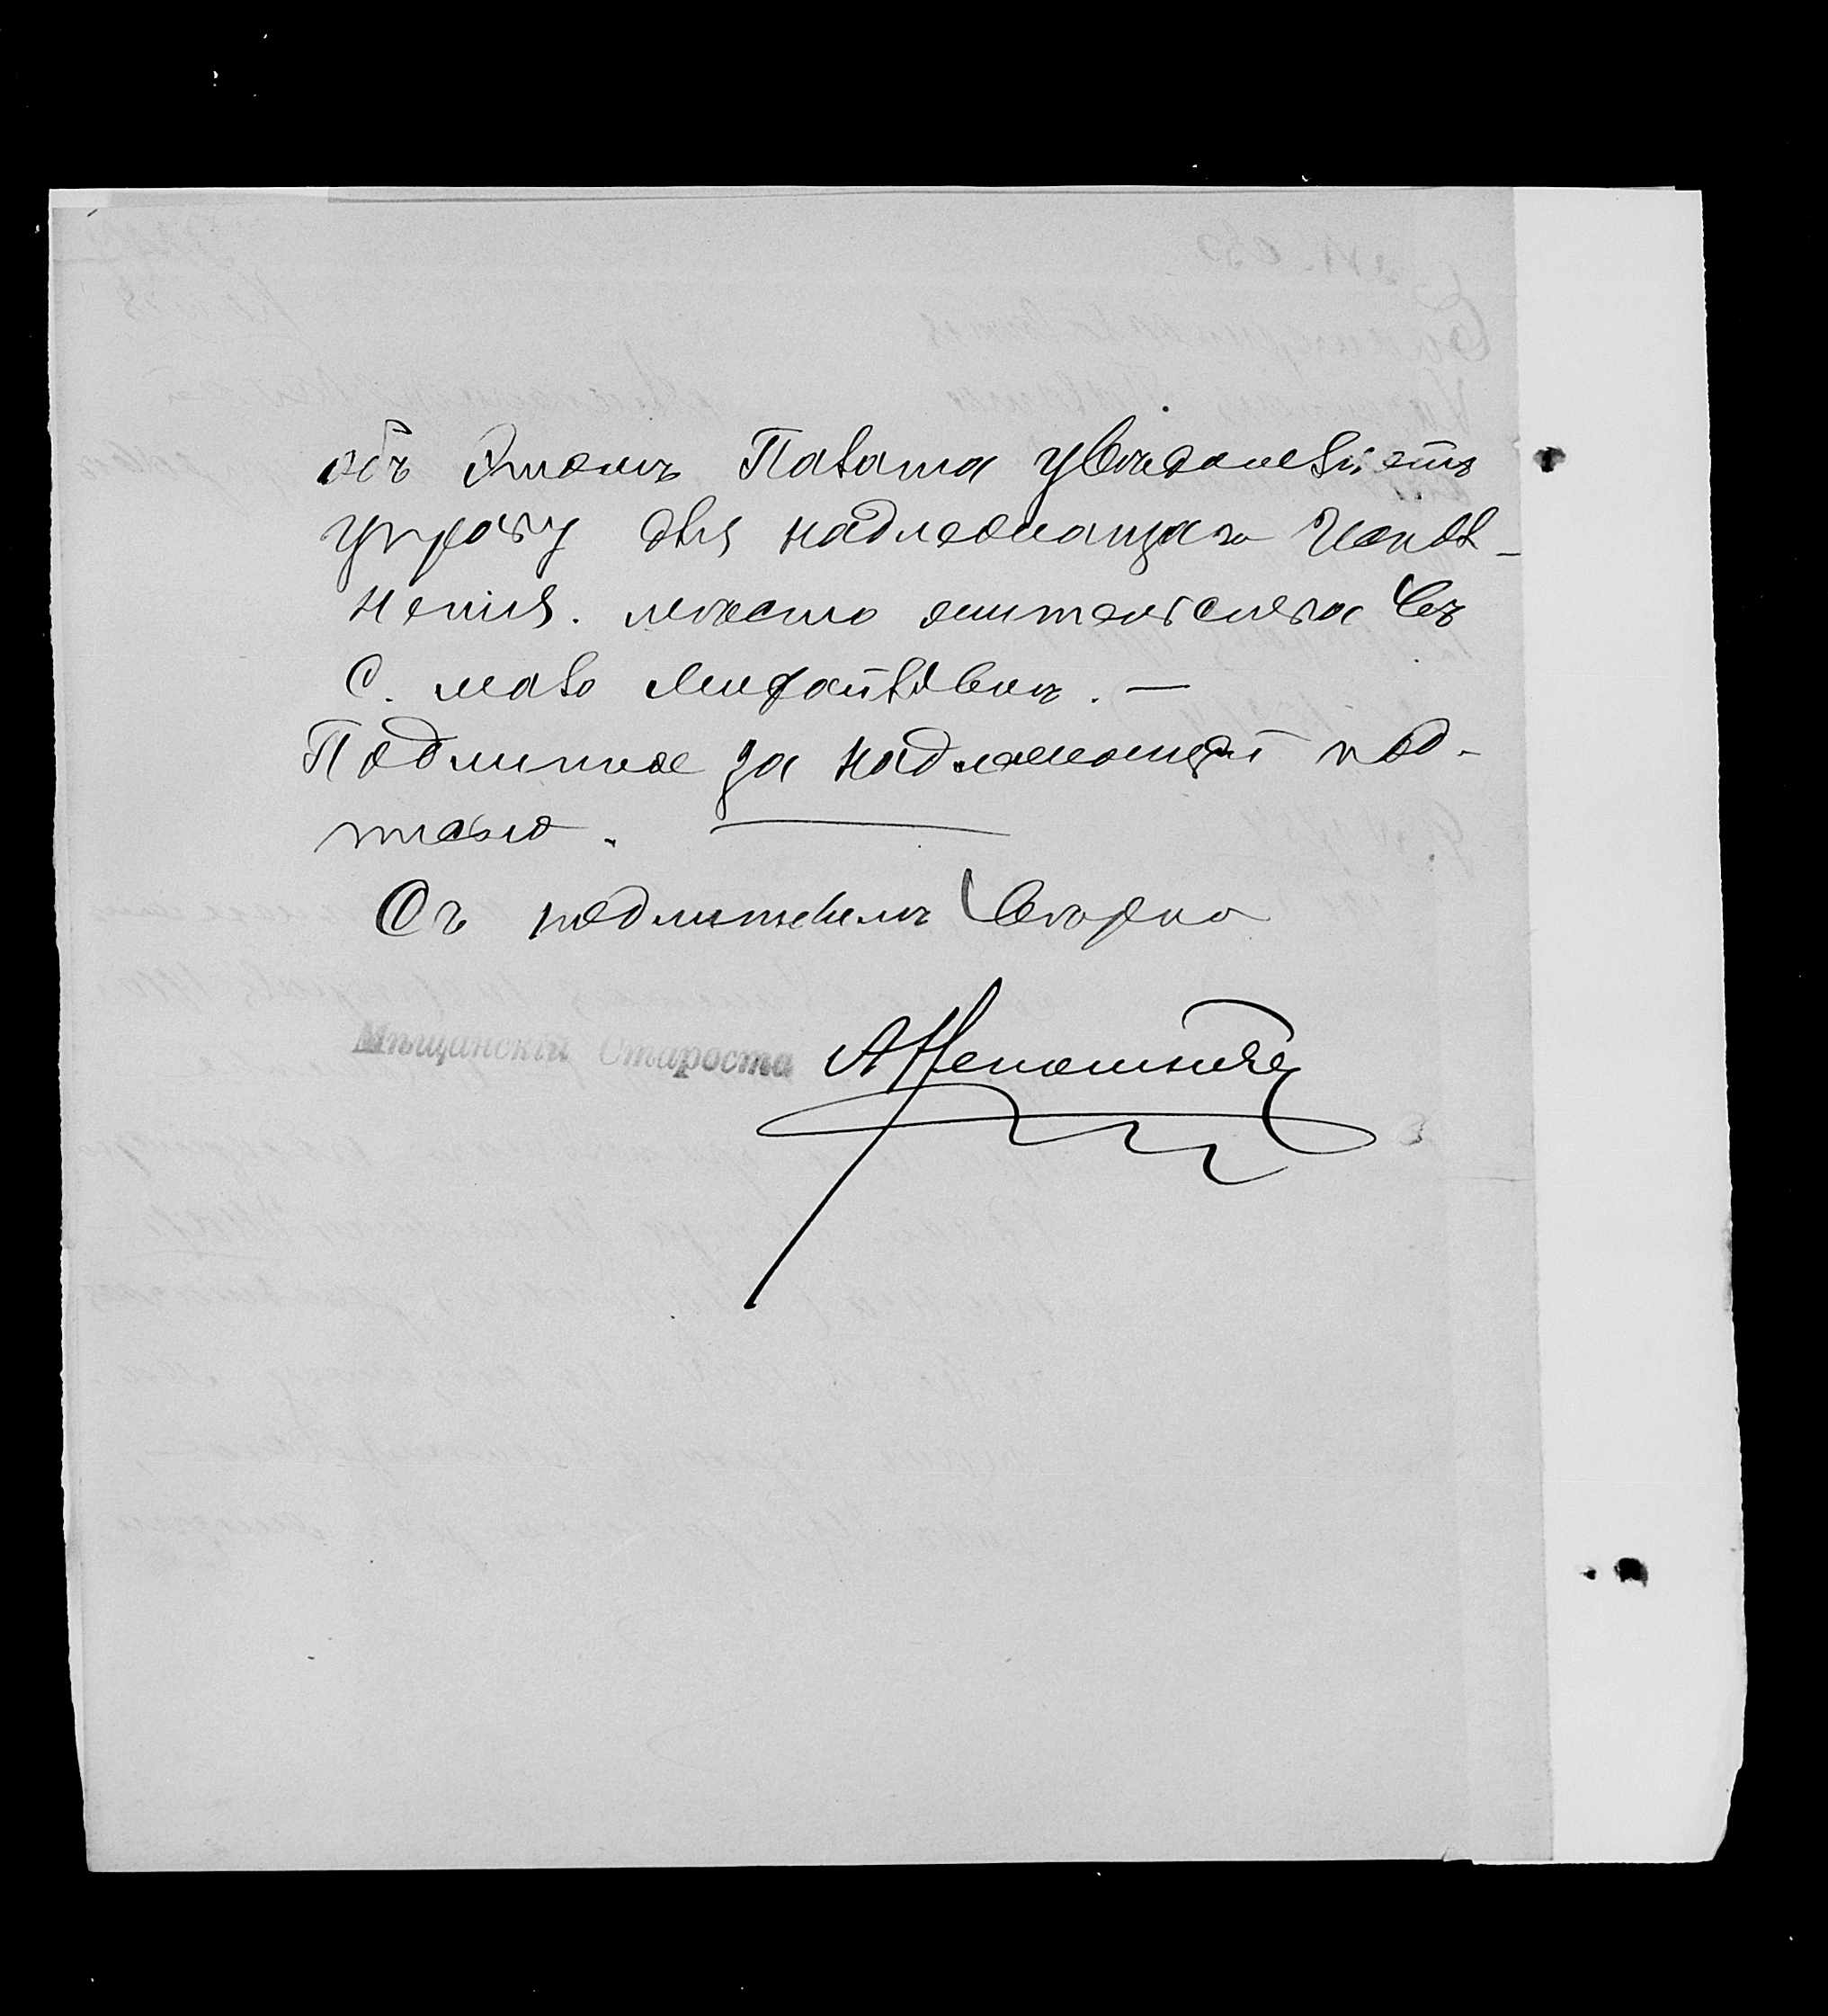 объ этомъ Палата увѣдомляетъ
управу для надлежащаго Испол-
ненія. мѣсто жительства въ
с. мало Михайловкѣ. —
Подлинное за надлежащей под-
писью.
Съ подлиннымъ вѣрно
Мѣщанскій Староста